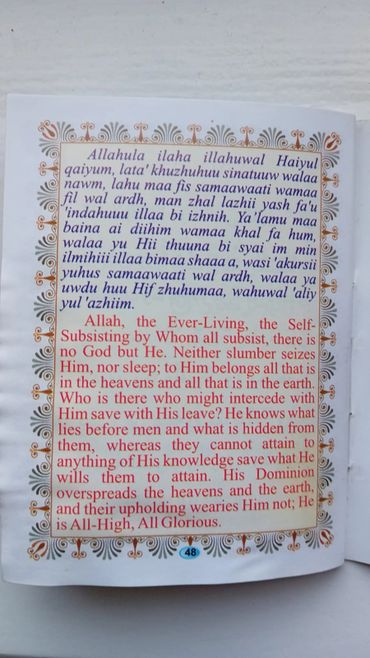 Allahula ilaha illahuwal Haiyul
qaiyum, lata' khuzhuhuu sinatuuw walaa
nawm, lahu maa fis samaawaati wamaa
fil wal ardh, man zhal lazhii yash fa'u
'indahuuu illaa bi izhnih. Ya'lamu maa
baina ai diihim wamaa khal fa hum,
walaa yu Hii thuuna bi syai im min
ilmihiii illaa bimaa shaaa a, wasi 'akursii
yuhus samaawaati wal ardh, walaa ya
uwdu huu Hif zhuhumaa, wahuwal 'aliy
yul 'azhiim.
Allah, the Ever-Living, the Self-
Subsisting by Whom all subsist, there is
no God but He. Neither slumber seizes
Him, nor sleep; to Him belongs all that is
in the heavens and all that is in the earth.
Who is there who might intercede with
Him save with His leave? He knows what
lies before men and what is hidden from
them, whereas they cannot attain to
anything of His knowledge save what He
wills them to attain. His Dominion
overspreads the heavens and the earth,
and their upholding wearies Him not; He
is All-High, All Glorious.
48